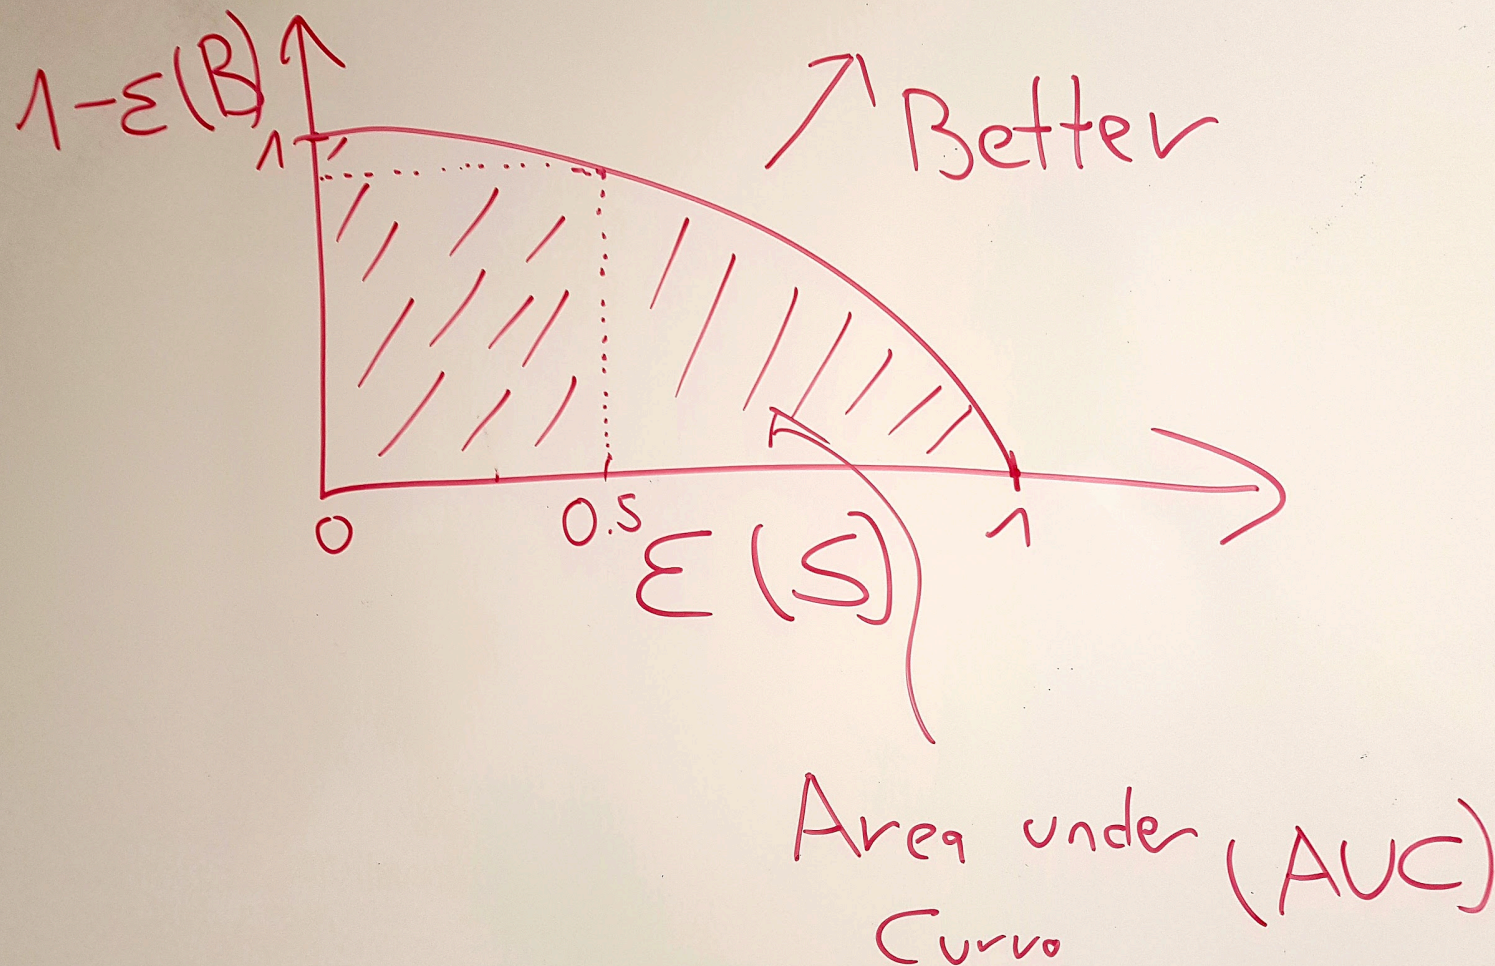 1-ε(B)
1
Better
0
0.5
1
ε(S)
Area under
Curve
(AUC)